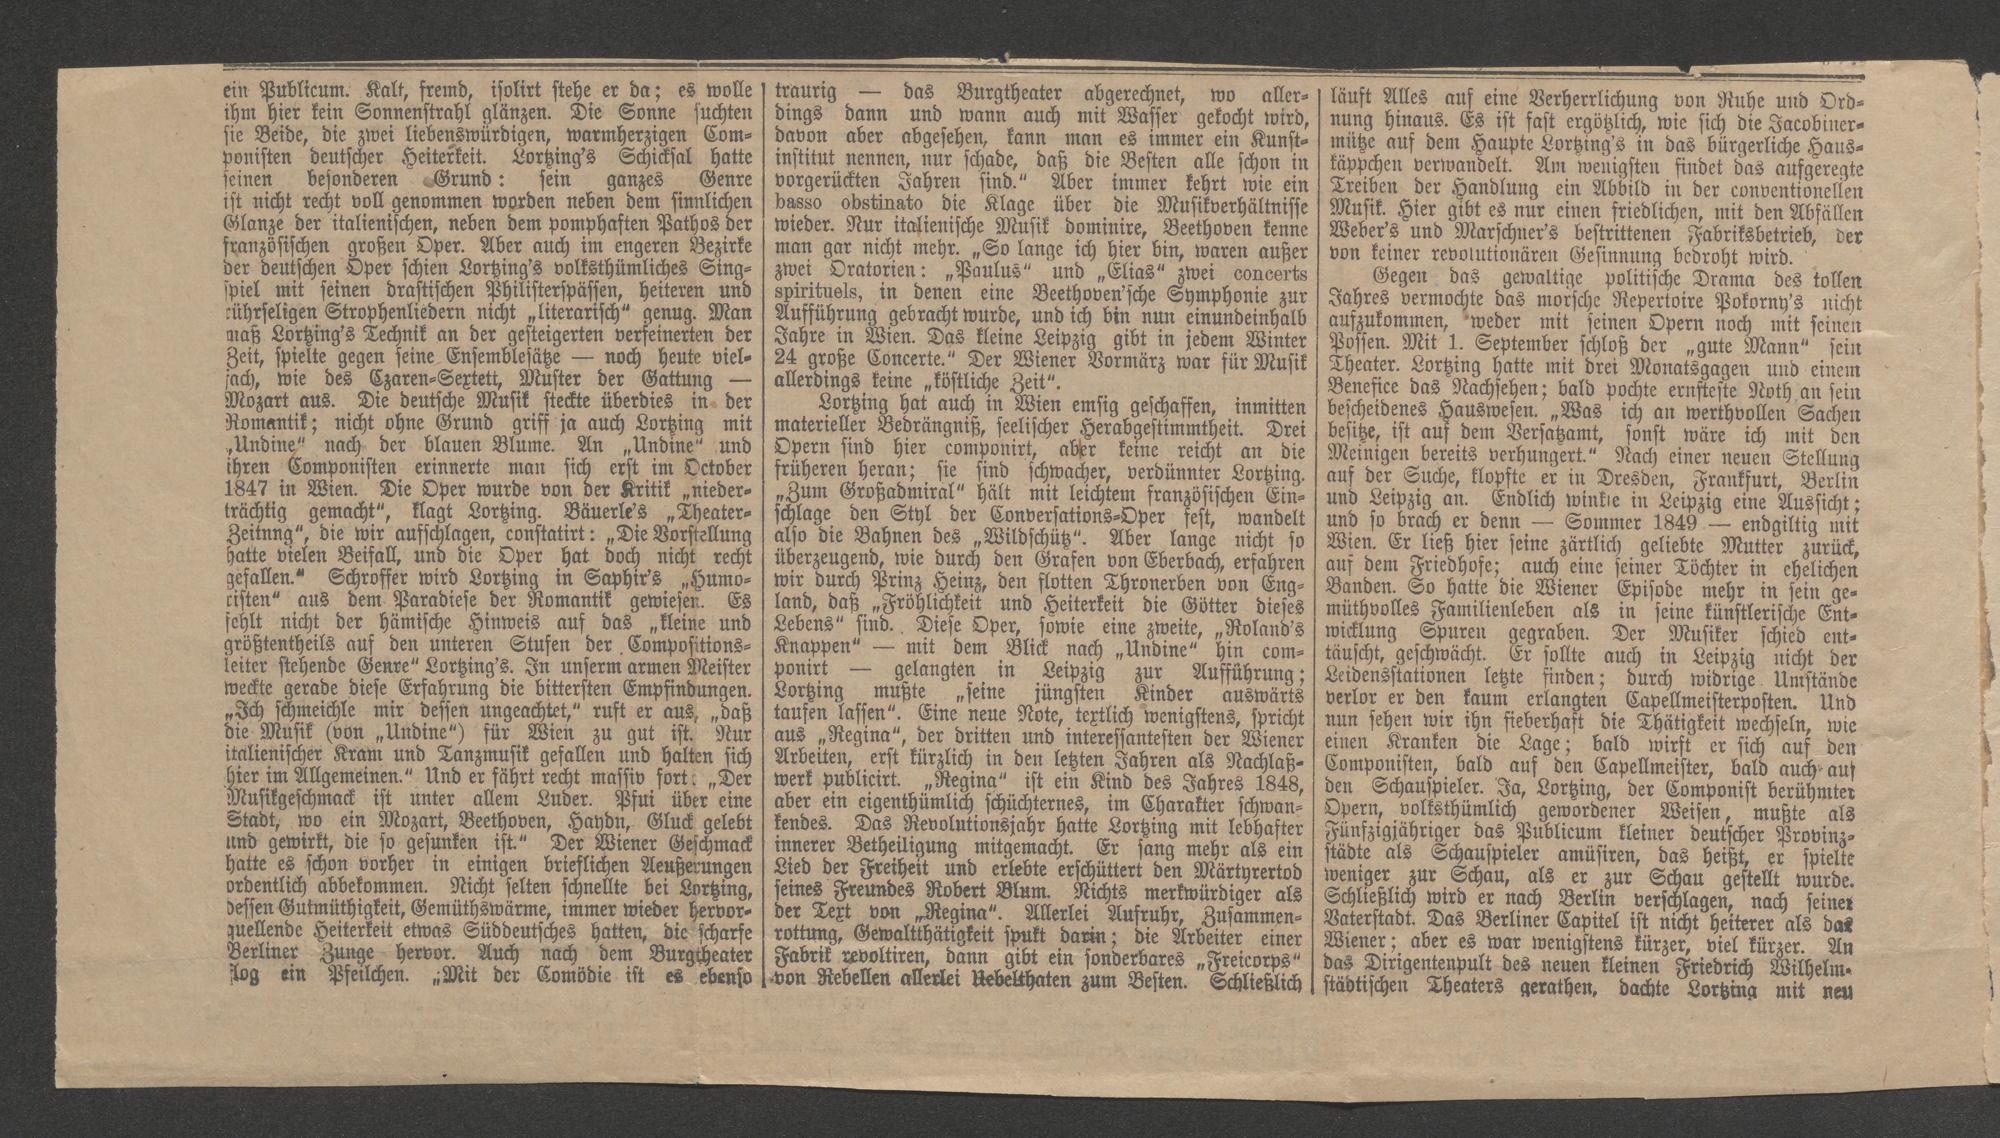 ein Publicum. Kalt, fremd, isolirt stehe er da; es wolle
ihm hier kein Sonnenstrahl glänzen. Die Sonne suchten
sie Beide, die zwei liebenswürdigen, warmherzigen Com-
ponisten deutscher Heiterkeit. Lortzing's Schicksal hatte
seinen besonderen Grund: sein ganzes Genre
ist nicht recht voll genommen worden neben dem sinnlichen
Glanze der italienischen, neben dem pomphaften Pathos der
französischen großen Oper. Aber auch im engeren Bezirke
der deutschen Oper schien Lortzing's volksthümliches Sing-
spiel mit seinen drastischen Philisterspässen, heiteren und
rührseligen Strophenliedern nicht „literarisch" genug. Man
maß Lortzing's Technik an der gesteigerten verfeinerten der
Zeit, spielte gegen seine Ensemblesätze — noch heute viel-
fach, wie des Czaren-Sextett, Muster der Gattung —
Mozart aus. Die deutsche Musik steckte überdies in der
Romantik; nicht ohne Grund griff ja auch Lortzing mit
„Undine" nach der blauen Blume. An „Undine" und
ihren Componisten erinnerte man sich erst im October
1847 in Wien. Die Oper wurde von der Kritik „nieder-
trächtig gemacht", klagt Lortzing. Bäuerle's „Theater-
Zeitung", die wir aufschlagen, constatirt: „Die Vorstellung
hatte vielen Beifall, und die Oper hat doch nicht recht
gefallen." Schroffer wird Lortzing in Saphir's „Humo-
risten" aus dem Paradiese der Romantik gewiesen. Es
fehlt nicht der hämische Hinweis auf das „kleine und
größtentheils auf den unteren Stufen der Compositions-
leiter stehende Genre" Lortzing's. In unserm armen Meister
weckte gerade diese Erfahrung die bittersten Empfindungen.
„Ich schmeichle mir dessen ungeachtet," ruft er aus, „daß
die Musik (von „Undine") für Wien zu gut ist. Nur
italienischer Kram und Tanzmusik gefallen und halten sich
hier im Allgemeinen." Und er fährt recht massiv fort: „Der
Musikgeschmack ist unter allem Luder. Pfui über eine
Stadt, wo ein Mozart, Beethoven, Haydn, Gluck gelebt
und gewirkt, die so gesunken ist." Der Wiener Geschmack
hatte es schon vorher in einigen brieflichen Aeußerungen
ordentlich abbekommen. Nicht selten schnellte bei Lortzing,
dessen Gutmüthigkeit, Gemüthswärme, immer wieder hervor-
quellende Heiterkeit etwas Süddeutsches hatten, die scharfe
Berliner Zunge hervor. Auch nach dem Burgtheater
flog ein Pfeilchen. „Mit der Comödie ist es ebenso
traurig — das Burgtheater abgerechnet, wo aller-
dings dann und wann auch mit Wasser gekocht wird,
davon aber abgesehen, kann man es immer ein Kunst-
institut nennen, nur schade, daß die Besten alle schon in
vorgerückten Jahren sind." Aber immer kehrt wie ein
basso obstinato die Klage über die Musikverhältnisse
wieder. Nur italienische Musik dominire, Beethoven kenne
man gar nicht mehr. „So lange ich hier bin, waren außer
zwei Oratorien: „Paulus" und „Elias" zwei concerts
spirituels, in denen eine Beethoven'sche Symphonie zur
Aufführung gebracht wurde, und ich bin nun einundeinhalb
Jahre in Wien. Das kleine Leipzig gibt in jedem Winter
24 große Concerte." Der Wiener Vormärz war für Musik
allerdings keine „köstliche Zeit".
Lortzing hat auch in Wien emsig geschaffen, inmitten
materieller Bedrängniß, seelischer Herabgestimmtheit. Drei
Opern sind hier componirt, aber keine reicht an die
früheren heran; sie sind schwacher, verdünnter Lortzing.
„Zum Großadmiral" hält mit leichtem französischen Ein-
schlage den Styl der Conversations-Oper fest, wandelt
also die Bahnen des „Wildschütz". Aber lange nicht so
überzeugend, wie durch den Grafen von Eberbach, erfahren
wir durch Prinz Heinz, den flotten Thronerben von Eng-
land, daß „Fröhlichkeit und Heiterkeit die Götter dieses
Lebens" sind. Diese Oper, sowie eine zweite, „Roland's
Knappen" — mit dem Blick nach „Undine" hin com-
ponirt — gelangten in Leipzig zur Aufführung;
Lortzing mußte „seine jüngsten Kinder auswärts
taufen lassen". Eine neue Note, textlich wenigstens, spricht
aus „Regina", der dritten und interessantesten der Wiener
Arbeiten, erst kürzlich in den letzten Jahren als Nachlaß-
werk publicirt. „Regina" ist ein Kind des Jahres 1848,
aber ein eigenthümlich schüchternes, im Charakter schwan-
kendes. Das Revolutionsjahr hatte Lortzing mit lebhafter
innerer Betheiligung mitgemacht. Er sang mehr als ein
Lied der Freiheit und erlebte erschüttert den Märtyrertod
seines Freundes Robert Blum. Nichts merkwürdiger als
der Text von „Regina". Allerlei Aufruhr, Zusammen-
rottung, Gewaltthätigkeit spukt darin; die Arbeiter einer
Fabrik revoltiren, dann gibt ein sonderbares „Freicorps"
von Rebellen allerlei Uebelthaten zum Besten. Schließlich
läuft Alles auf eine Verherrlichung von Ruhe und Ord-
nung hinaus. Es ist fast ergötzlich, wie sich die Jacobiner-
mütze auf dem Haupte Lortzing's in das bürgerliche Haus-
käppchen verwandelt. Am wenigsten findet das aufgeregte
Treiben der Handlung ein Abbild in der conventionellen
Musik. Hier gibt es nur einen friedlichen, mit den Abfällen
Weber's und Marschner's bestrittenen Fabriksbetrieb, der
von keiner revolutionären Gesinnung bedroht wird.
Gegen das gewaltige politische Drama des tollen
Jahres vermochte das morsche Repertoire Pokorny's nicht
aufzukommen, weder mit seinen Opern noch mit seinen
Possen. Mit 1. September schloß der „gute Mann" sein
Theater. Lortzing hatte mit drei Monatsgagen und einem
Benefice das Nachsehen; bald pochte ernsteste Noth an sein
bescheidenes Hauswesen. „Was ich an werthvollen Sachen
besitze, ist auf dem Versatzamt, sonst wäre ich mit den
Meinigen bereits verhungert." Nach einer neuen Stellung
auf der Suche, klopfte er in Dresden, Frankfurt, Berlin
und Leipzig an. Endlich winkte in Leipzig eine Aussicht;
und so brach er denn — Sommer 1849 — endgiltig mit
Wien. Er ließ hier seine zärtlich geliebte Mutter zurück,
auf dem Friedhofe; auch eine seiner Töchter in ehelichen
Banden. So hatte die Wiener Episode mehr in sein ge-
müthvolles Familienleben als in seine künstlerische Ent-
wicklung Spuren gegraben. Der Musiker schied ent-
täuscht, geschwächt. Er sollte auch in Leipzig nicht der
Leidensstationen letzte finden; durch widrige Umstände
verlor er den kaum erlangten Capellmeisterposten. Und
nun sehen wir ihn fieberhaft die Thätigkeit wechseln, wie
einen Kranken die Lage; bald wirft er sich auf den
Componisten, bald auf den Capellmeister, bald auch auf
den Schauspieler. Ja, Lortzing, der Componist berühmter
Opern, volksthümlich gewordener Weisen, mußte als
Fünfzigjähriger das Publicum kleiner deutscher Provinz-
städte als Schauspieler amüsiren, das heißt, er spielte
weniger zur Schau, als er zur Schau gestellt wurde.
Schließlich wird er nach Berlin verschlagen, nach seiner
Vaterstadt. Das Berliner Capitel ist nicht heiterer als das
Wiener; aber es war wenigstens kürzer, viel kürzer. An
das Dirigentenpult des neuen kleinen Friedrich Wilhelm-
städtischen Theaters gerathen, dachte Lortzing mit neu